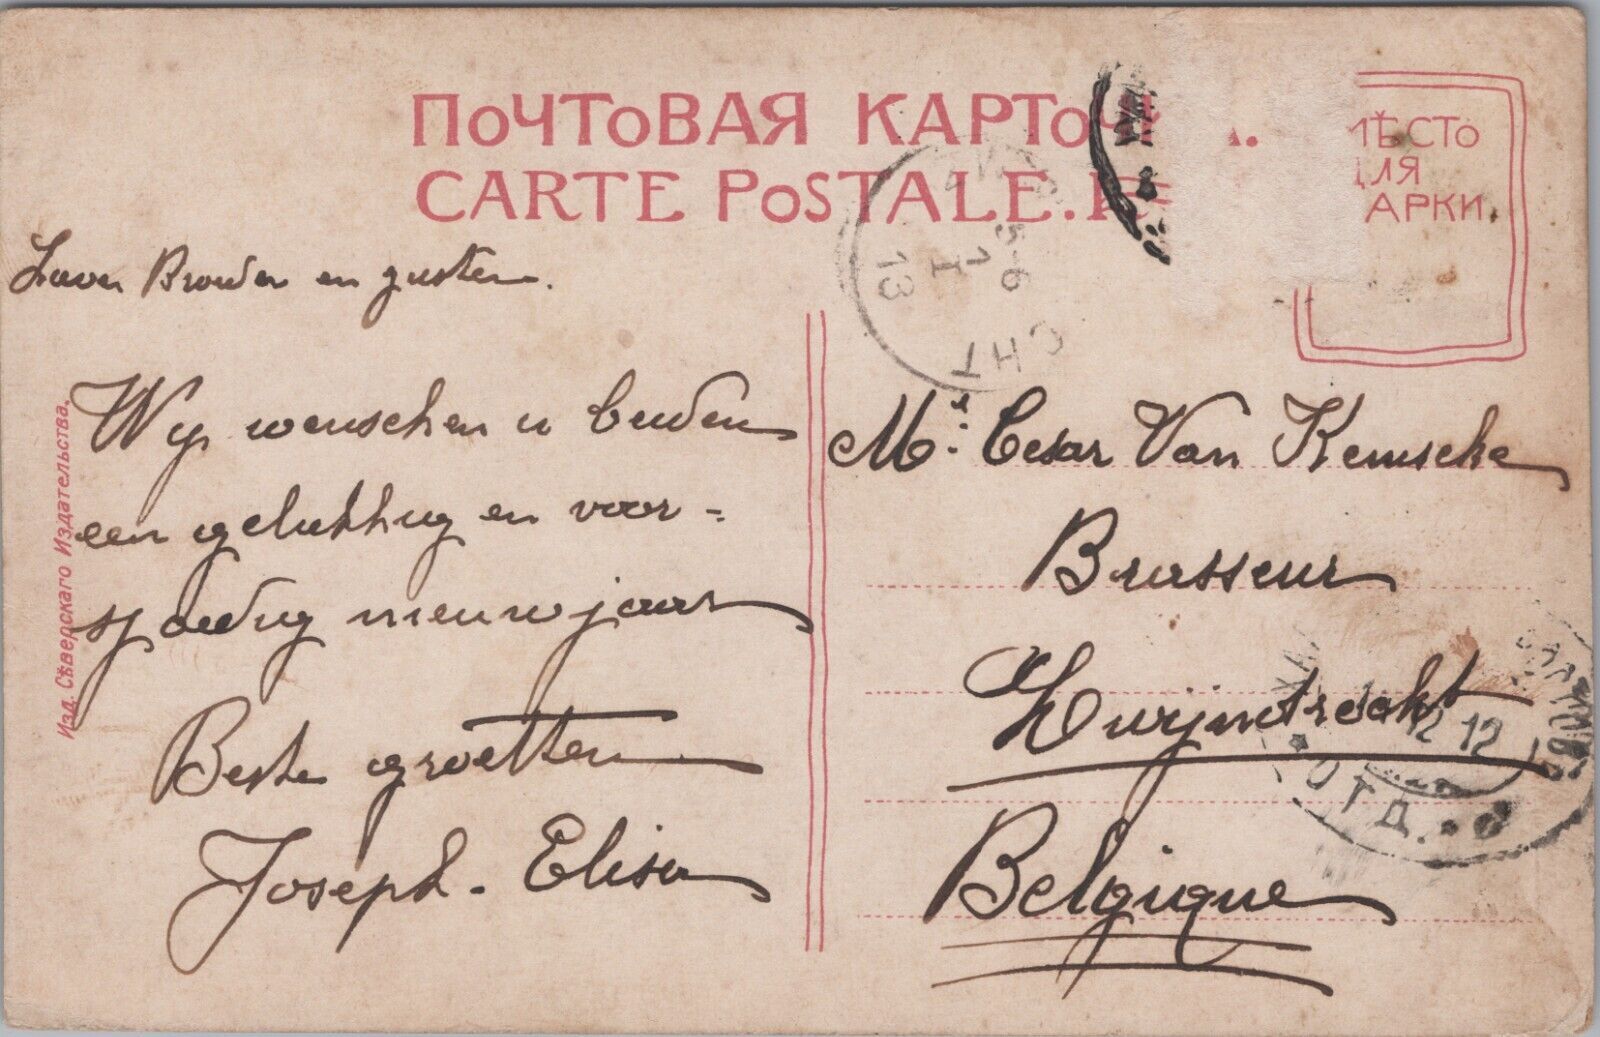 ПОЧТОВАЯ КАРТОЧ А.
CARTE POSTALE.
МѢСТО
ДЛЯ
АРКИ
Broeder en zuster.
Wij wenschen u beiden
een gelukkig en voor-
spoedig nieuwjaar
Beste groetten
Joseph - Elisa
Изд. Сѣверскаго Издательства.
Mr. Cesar Van Kemseke
Brasseur
Zwijndrecht
Belgique
5-6
1
I
13
CHT
12 12
ОТД.